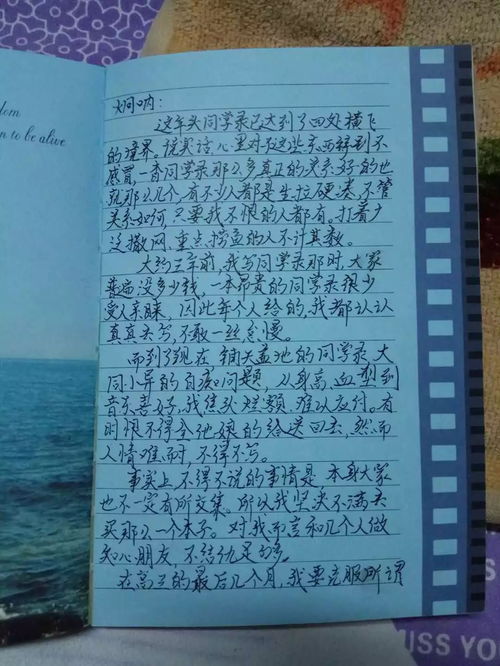 dom
n to be alive
炯呐：
这年头同学录已达到了四处横飞
的境界。说实话，心里对这些东西特别不
感冒，一本同学录那么多真正的关系好的也
就那么几个，有不少人都是生拉硬凑，不管
关系如何，只要我不恨的人都有。打着少
泛撒网，重点捞鱼的人不计其数。
大约三年前，我写同学录那时，大家
普遍没多少钱，一本昂贵的同学录很少
受人亲睐，因此每个人给的，我都认认
真真去写，不敢一丝怠慢。
而到了现在，铺天盖地的同学录，大
同小异的自虐问题，从身高，血型到
音乐喜好，我焦头烂额，难以应付。有
时恨不得全他娘的给送回去，然而
人情难耐，不得不写。
事实上，不得不说的事情是，本身大家
也不一定有所交集。所以我坚决不满去
买那么一个本子。对我而言和几个人做
知心朋友，不结仇足矣。
在高三的最后几个月，我要克服所谓
ISS YO